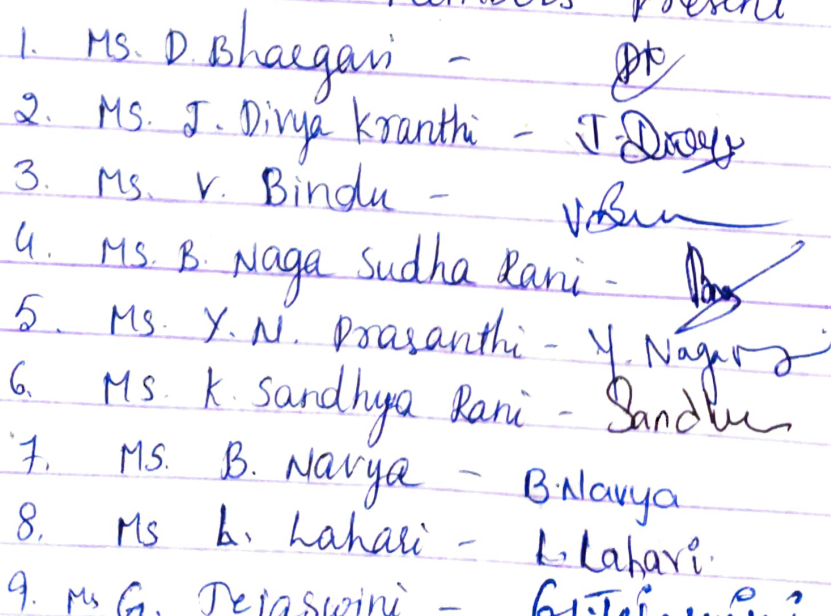 Members Present
1. Ms. D. Bhargavi -
2. Ms. J. Divya Kranthi - J. Divya
3. Ms. V. Bindu - V. Bin
4. Ms. B. Naga Sudha Rani -
5. Ms. Y. N. Prasanthi - Y. Naga
6. Ms. K. Sandhya Rani - Sandhy
7. Ms. B. Navya - B. Navya
8. Ms L. Lahari - L. Lahari.
9. Ms G. Tejaswini - G. Tejaswini